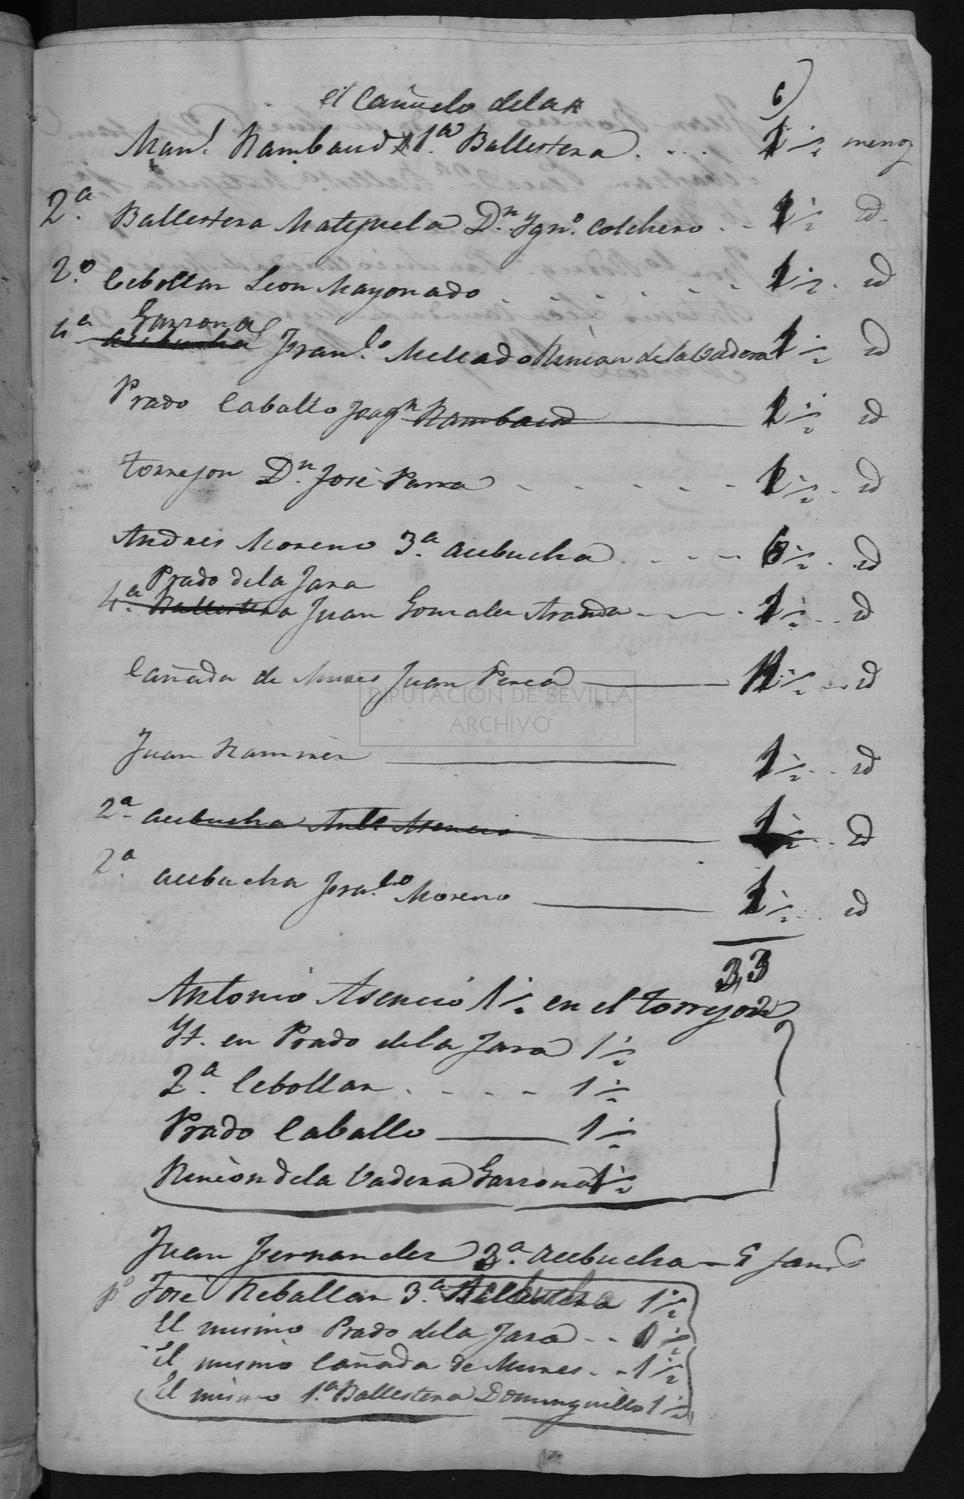 6)
el Cañuelo de la
Man.l Rambaud 1.a Ballestera . . . 1 1/2 menos
2.a Ballestera Matepuela D.n Ygn.o Colchero . . 1 1/2 id.
2.o Cebollar Leon Mayorado . . . . . 1 1/2 . id
4.a Garrona Fran.co Mellado Rincon de la Vadera 1 1/2 id
Prado Caballo Joaq.n Rambaud 1 1/2 id
Torrejon D.n José Parra . . . . . 1 1/2 . id
Andres Moreno 3.a acebucha . . . . 6 1/2 . id
Prado de la Jara
4.a Ballestera Juan Gonzalez Aranda 1 1/2 . . id
Cañada de Munes Juan Perea 1 1/2 . . . id
DIPUTACIÓN DE SEVILLA
ARCHIVO
Juan Ramirez 1 1/2 . . id
2.a acebucha Ant.o Asencio 1 1/2 . . id
2.a acebucha Fran.co Moreno 1 1/2 . . id
33
Antonio Asencio 1 1/2 en el Torrejon
Yt. en Prado de la Jara 1 1/2
2.a Cebollar . . . . 1 1/2
Prado Caballo 1 1/2
Rincon de la Vadera Garrona 1 1/2
Juan Fernandez 3.a acebucha
p.o José Reballar 3.a 1 1/2
El mismo Prado de la Jara . . 1 1/2
El mismo Cañada de Munes . . 1 1/2
El mismo 1.a Ballestera Dominguillo 1 1/2